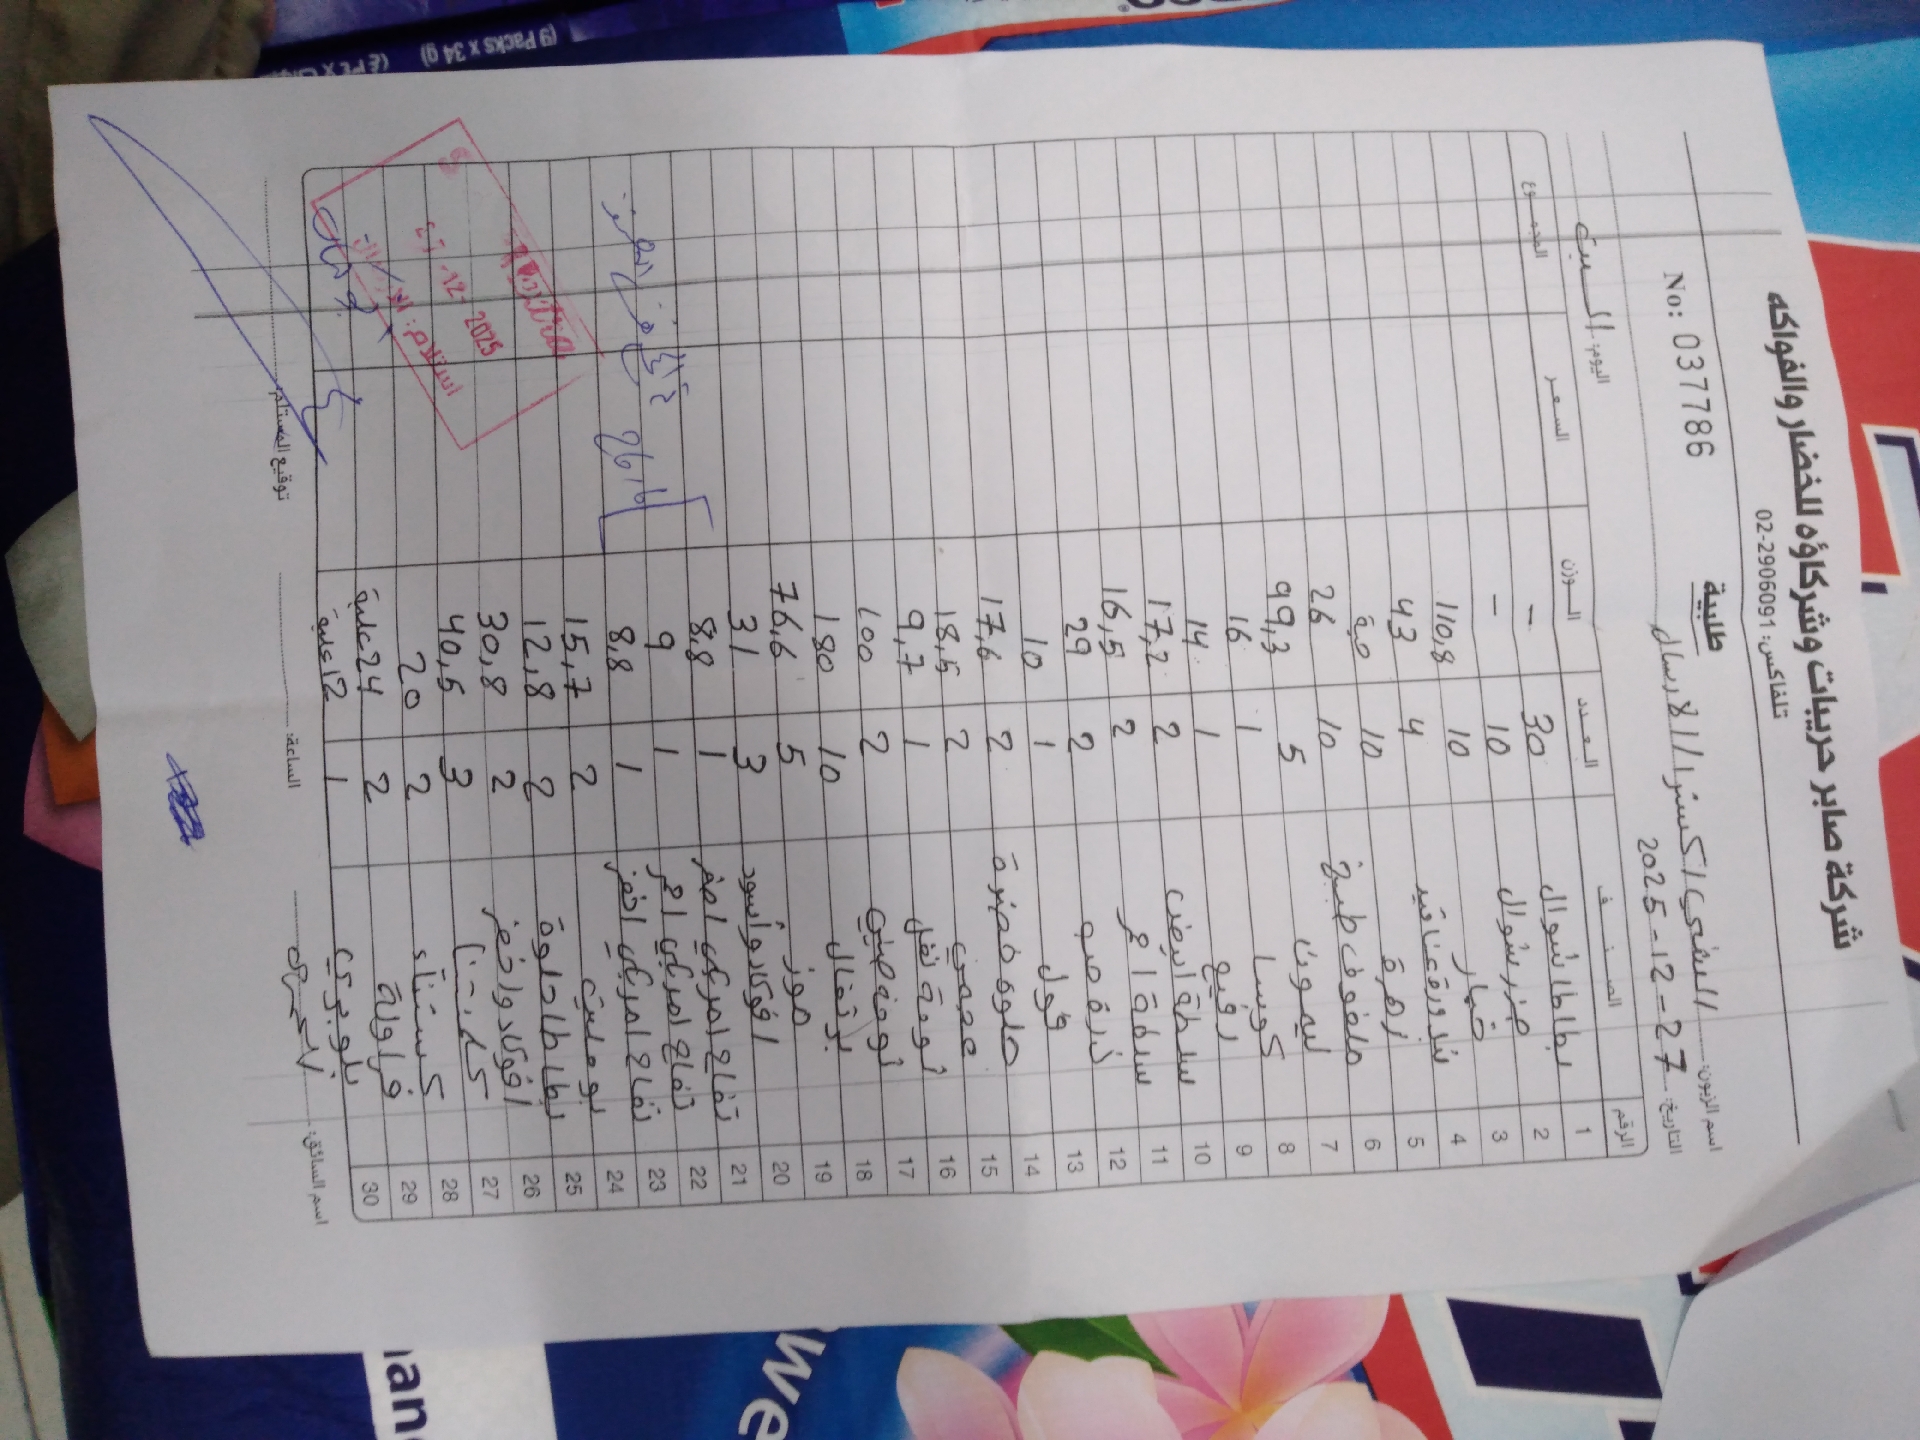 شركة صابر حريبات وشركاؤه للخضار والفواكه
تلفاكس: 02-2906091
طلبية
No: 037786
اسم الزبون: السفدي / اكسترا / الارسال
اليوم: السبت التاريخ: 27-12-2025
الرقم الصنف العدد الوزن السعر المجموع
1 بطاطا شوال 30 -
2 جزر شوال 10 -
3 خيار 10 110,8
4 بندورة عناقيد 4 43
5 زهرة 10 حبة
6 ملفوف طبيخ 10 26
7 ليمون 5 99,3
8 كوسا 1 16
9 رفيع 1 14
10 سلطة ابيض 2 17,2
11 سلطة احمر 2 16,5
12 ذرة صب 2 29
13 فول 1 10
14 حلوة خضرة 2 17,6
15 محمرة 2 18,5
16 ثومة نفل 1 9,7
17 ثومة صيني 2 100
18 برتقال 10 180
19 موز 5 76,6
20 افوكادو أسود 3 31
21 تفاح امريكي اصفر 1 8,8
22 تفاح امريكي احمر 1 9
23 تفاح امريكي اخضر 1 8,8
24 بوملي 2 15,7
25 بطاطا حلوة 2 12,8
26 افوكادو اخضر 2 30,8
27 كلمنتينا 3 40,5
28 كستناء 2 20
29 فراولة 2 24 علبة
30 بلوبيري 1 12 علبة
27 -12- 2025
استلام:
اسم السائق:
الساعة:
توقيع المستلم:
(9 Packs x 34 g)